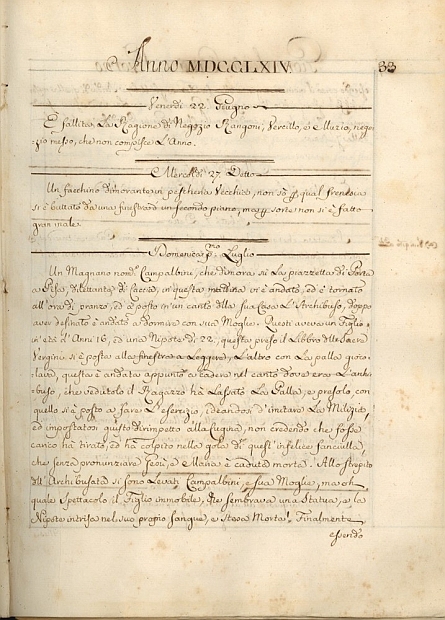 Anno MDCCLXIV.
83
Venerdì 22. Giugno
È fallita La Ragione di Negozio Rangoni, Vercillo, e Muzio, nego-
zio messo, che non compisce L'Anno.
Mercoldì 27. Detto
Un facchino dimorante in pescheria Vecchia, non sò qual frenesia
si è buttato da una finestra d'un secondo piano, ma sorte non si è fatto
gran male.
Domenica pmo Luglio
Un Magnano nom.o Campalbini, che dimora sù La piazzetta di Porta
a Pisa, dilettante di Caccia, in questa mattina vi è andato, ed è tornato
all'ora di pranzo, ed à posto in un canto della sua Casa L'Archibuso, doppo
aver desinato è andato a dormire con sua Moglie. Questi aveva un Figlio
in età d'Anni 16, ed una Nipote di 22, questa preso il Libro delle Sacre
Vergini si è posta alla finestra a Leggere, L'altro con La palla gioco-
lava, questa è andata appunto a cadere nel canto dove era L'archi-
buso, che vedutolo il Ragazzo hà Lassato La Palla, e presolo, con
quello si è posto a fare L'esercizio, ideandosi d'imitare La Milizia,
ed impostatosi giusto dirimpetto alla Cugina, non credendo che fosse
carico hà tirato, ed hà colpito nella gola di quest'infelice fanciulla,
che senza pronunziare Gesù, e Maria è caduta morta. Allo strepito
dell'Archibusata si sono Levati Campalbini, e sua Moglie, ma oh
quale spettacolo il Figlio immobile, che sembrava una Statua, e la
Nipote intrisa nel suo proprio sangue, e stesa Morta! Finalmente
essendo